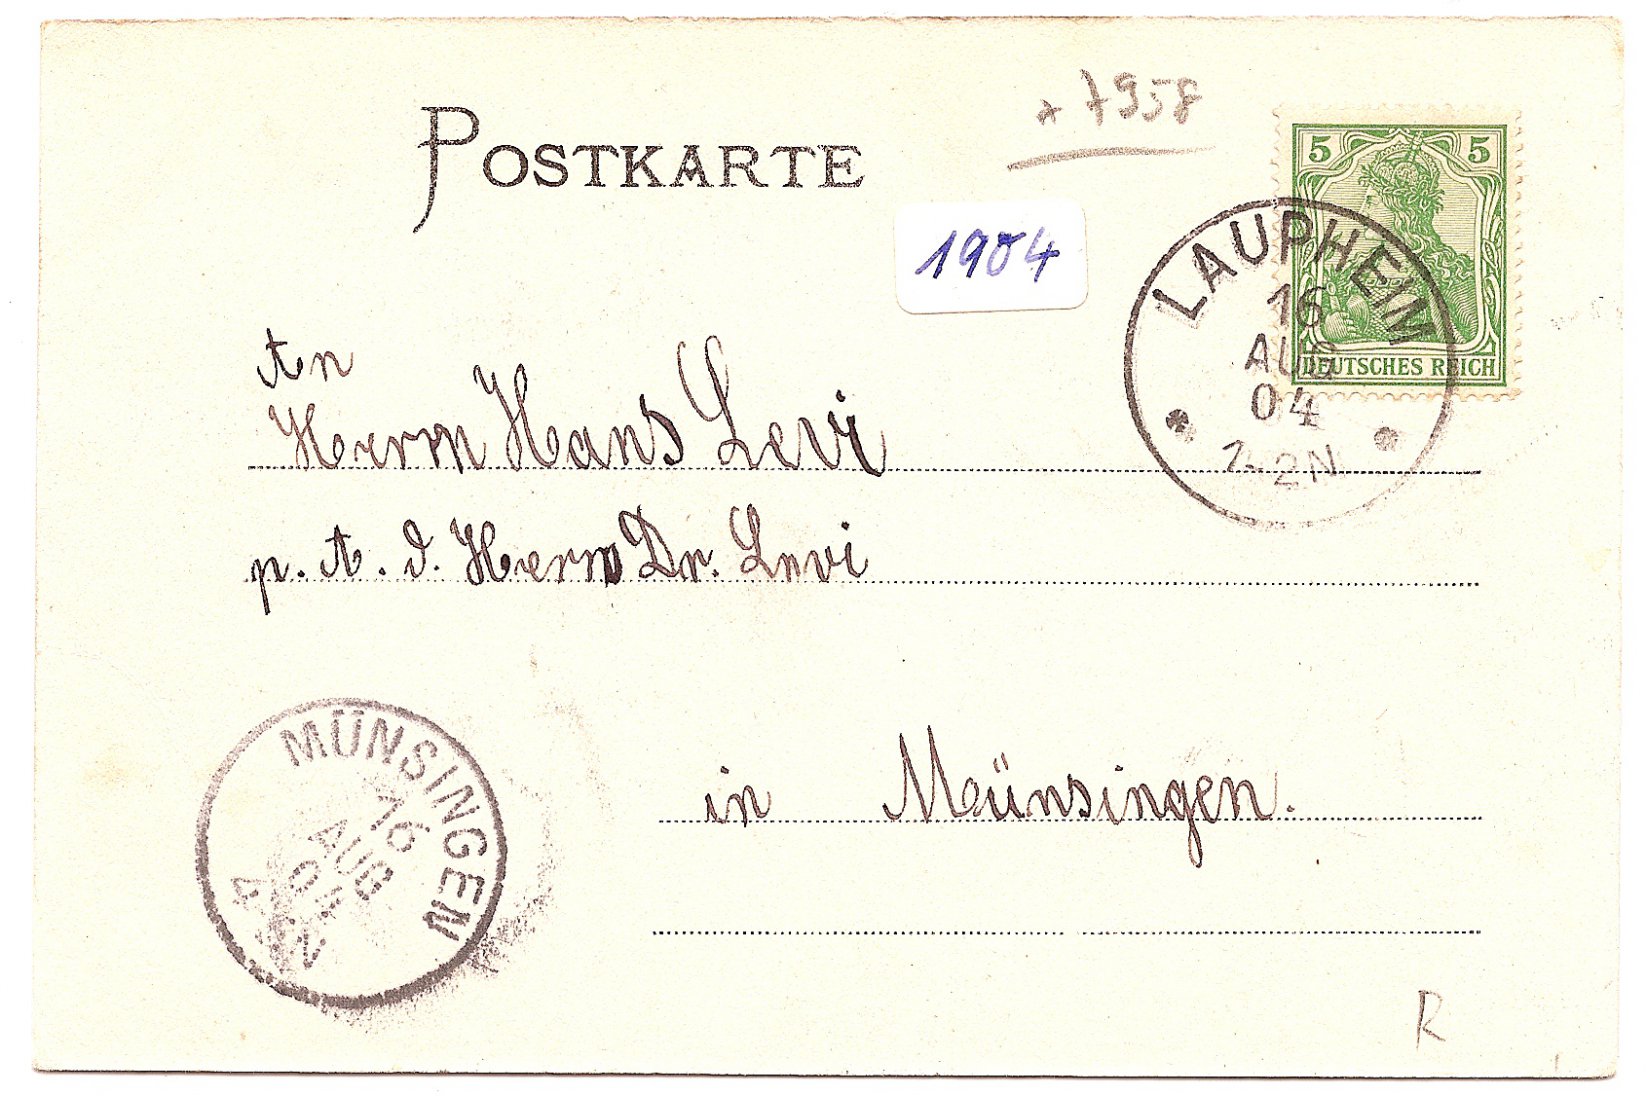 * 7958
POSTKARTE
5 5
DEUTSCHES REICH
1904
LAUPHEIM
16
AUG
04
1-2N
An
Herrn Hans Levi
p. A. d. Herrn Dr. Levi
in Münsingen.
MÜNSINGEN
16
AUG
04
4 N
R